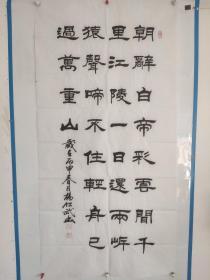 朝辭白帝彩雲間千
里江陵一日還兩岍
猿聲啼不住輕舟已
過萬重山
歲在丙申春月楊